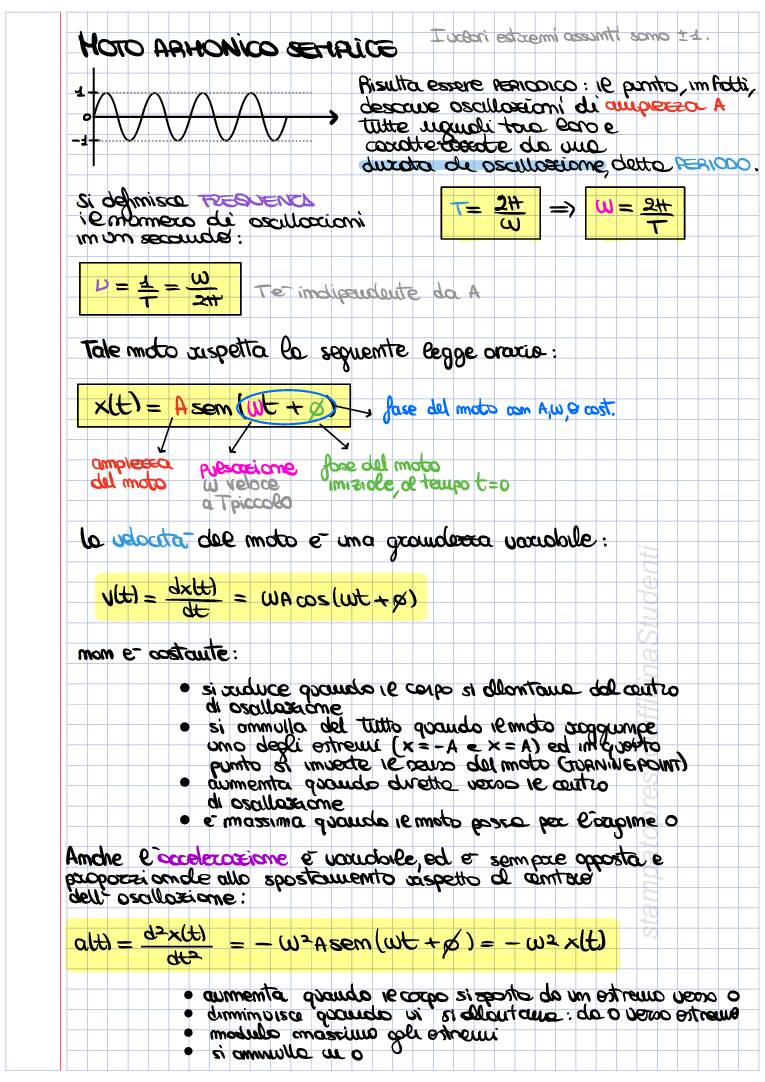 MOTO ARMONICO SEMPLICE
I valori estremi assunti sono ±1.
1
0
-1
Risulta essere PERIODICO: il punto, infatti,
descrive oscillazioni di ampiezza A
tutte uguali tra loro e
caratterizzate da una
durata di oscillazione, detta PERIODO.
Si definisce FREQUENZA
il numero di oscillazioni
in un secondo:
T = 2π/ω ⇒ ω = 2π/T
ν = 1/T = ω/2π
T è indipendente da A
Tale moto rispetta la seguente legge oraria:
x(t) = A sen(ωt + ø)
fase del moto con A, ω, ø cost.
ampiezza
del moto
pulsazione
ω veloce
a T piccolo
fase del moto
iniziale, al tempo t=0
la velocità del moto è una grandezza variabile:
v(t) = dx(t)/dt = ωA cos(ωt + ø)
non è costante:
• si riduce quando il corpo si allontana dal centro
di oscillazione
• si annulla del tutto quando il moto raggiunge
uno degli estremi (x = -A e x = A) ed in questo
punto si inverte il senso del moto (TURNING POINT)
• aumenta quando diretta verso il centro
di oscillazione
• è massima quando il moto passa per l'origine 0
Anche l'accelerazione è variabile, ed è sempre opposta e
proporzionale allo spostamento rispetto al centro
dell'oscillazione:
a(t) = d²x(t)/dt² = -ω²A sen(ωt + ø) = -ω² x(t)
• aumenta quando il corpo si sposta da un estremo verso 0
• diminuisce quando vi si allontana: da 0 verso estremo
• modulo massimo agli estremi
• si annulla in 0